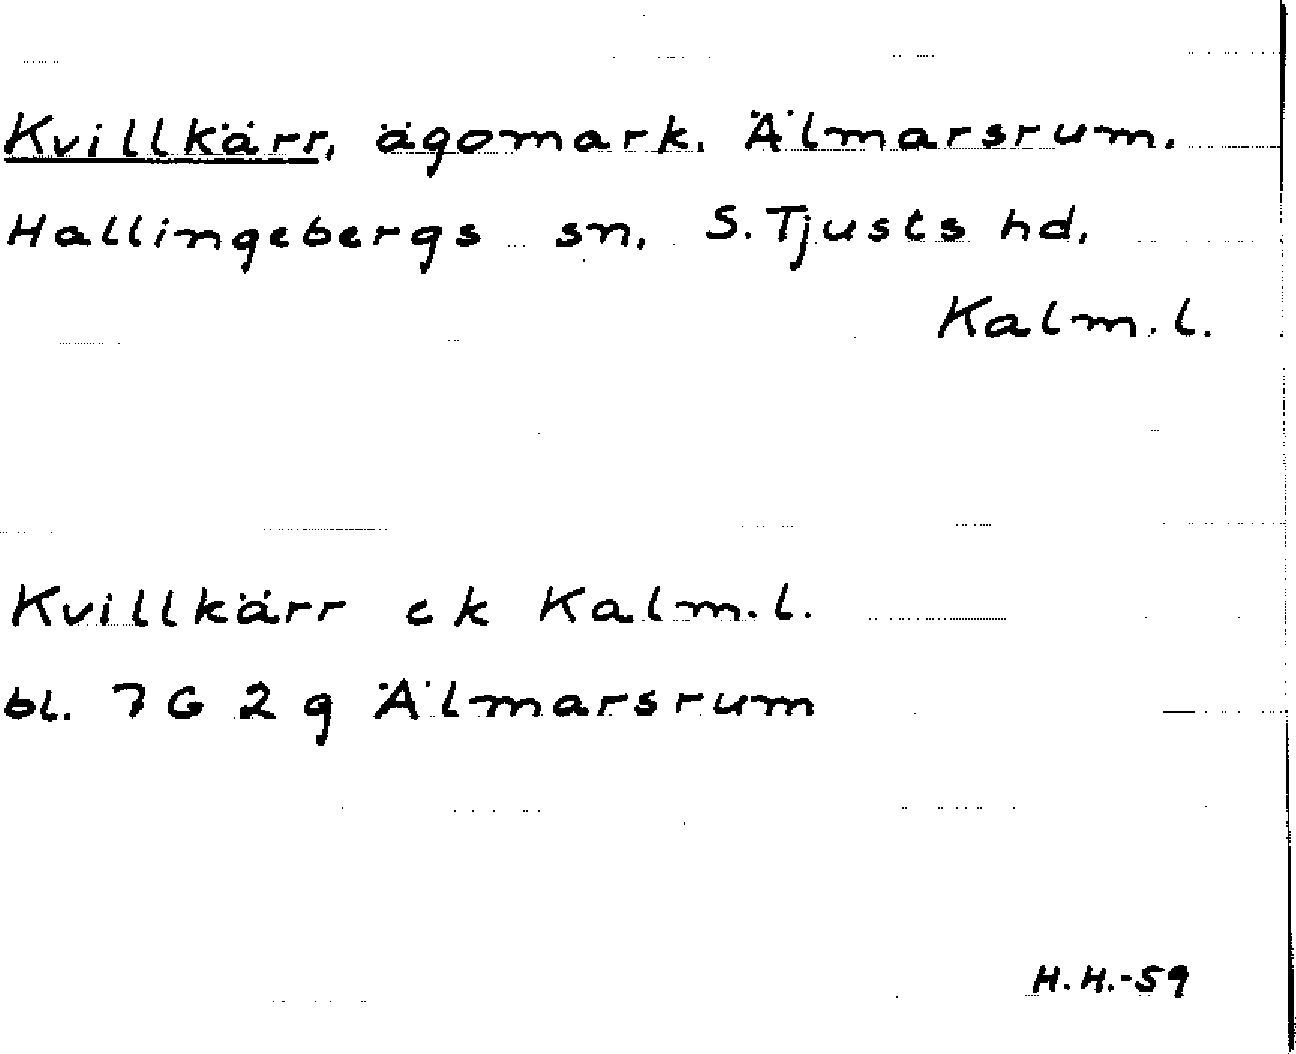 Kvillkärr, ägomark. Älmarsrum.
Hallingebergs sn. S. Tjusts hd.
Kalm. l.
Kvillkärr ek Kalm. l.
bl. 7 G 2 g Älmarsrum
H. H. -59